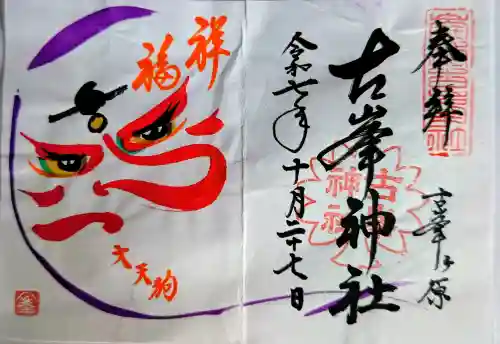 奉拝
古峯ヶ原
古峯神社
令和七年十月二十七日
祥福
大天狗
古峯神社